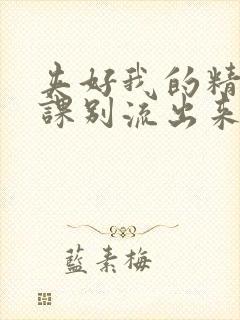 夹好我的精
課别流出来
藍素梅